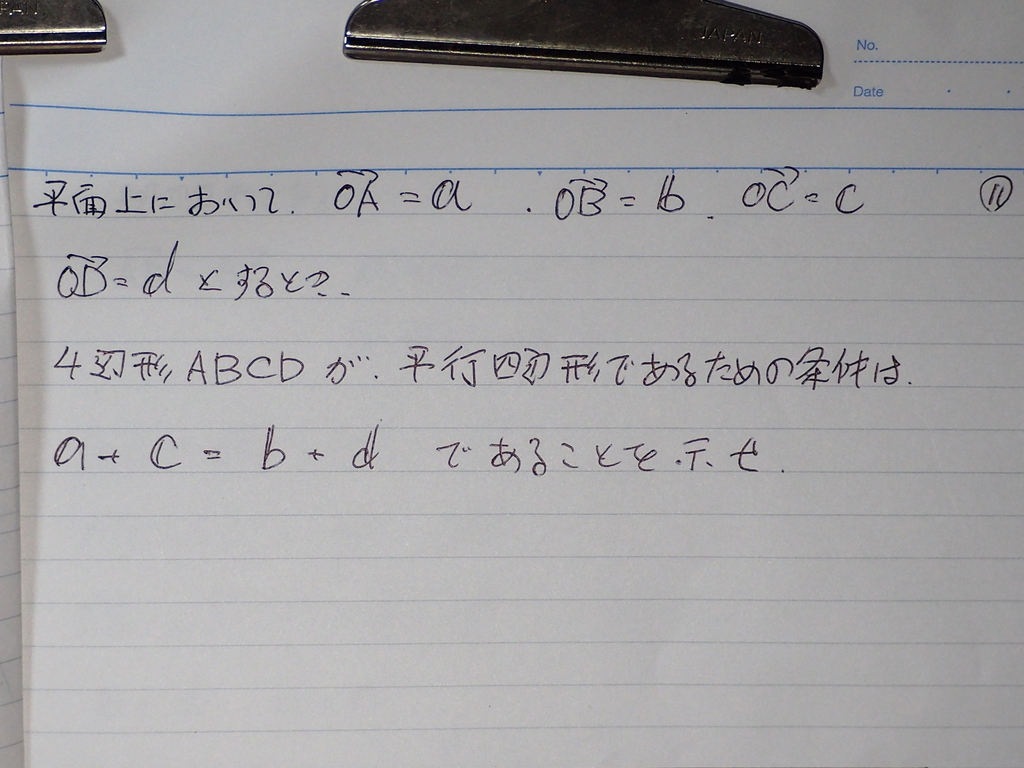 PAN
JAPAN
No.
Date
平面上において. OA→ = a . OB→ = b . OC→ = c ⑪
OD→ = d とするとき.
4辺形 ABCD が. 平行四辺形であるための条件は.
a + c = b + d であることを示せ.